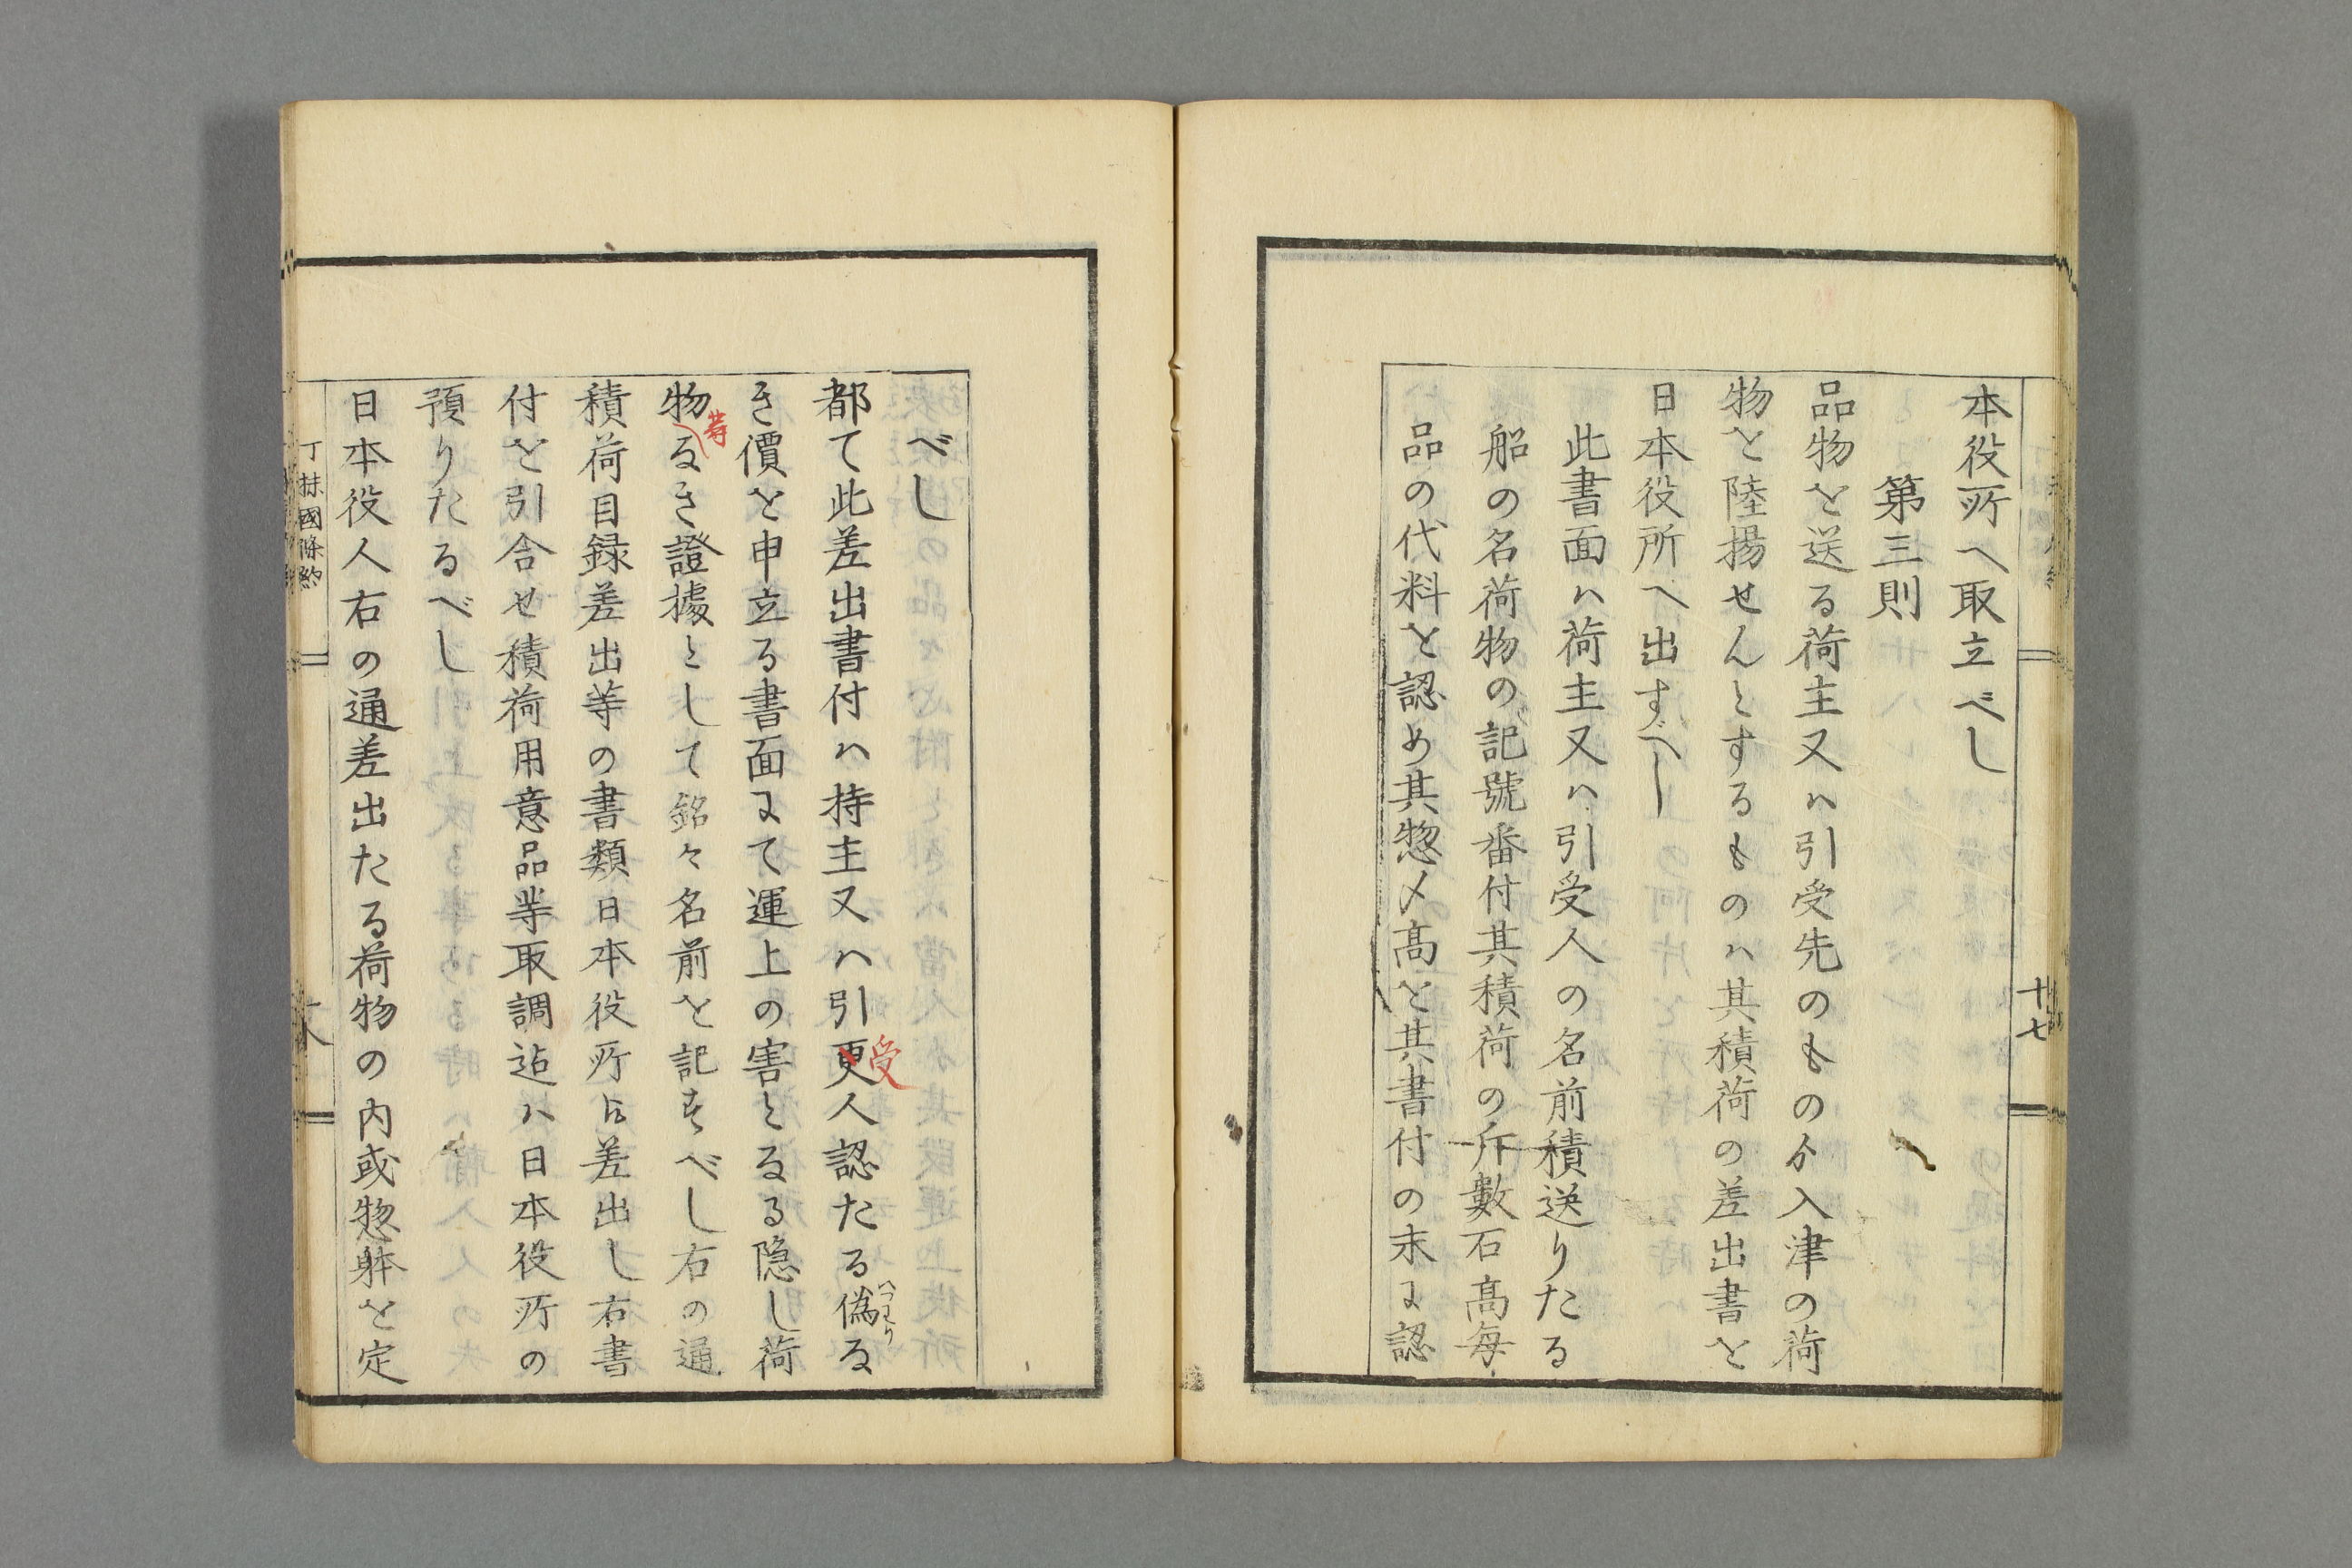 本役所へ取立べし
第三則
品物を送る荷主又ハ引受先のものゟ入津の荷
物を陸揚せんとするものハ其積荷の差出書を
日本役所へ出すべし
此書面ハ荷主又ハ引受人の名前積送りたる
船の名荷物の記號番付其積荷の斤數石高每
品の代料を認め其惣〆高を其書付の末に認
十七
べし
都て此差出書付ハ持主又ハ引更人認たる偽な
受
いつわり
き價を申立る書面にて運上の害となる隠し荷
物なき證據として銘々名前を記すべし右の通
等
積荷目録差出等の書類日本役所ゟ差出し右書
付を引合せ積荷用意品等取調迠ハ日本役所の
預りたるべし
日本役人右の通差出たる荷物の内或惣躰を定
丁抹國條約
十八